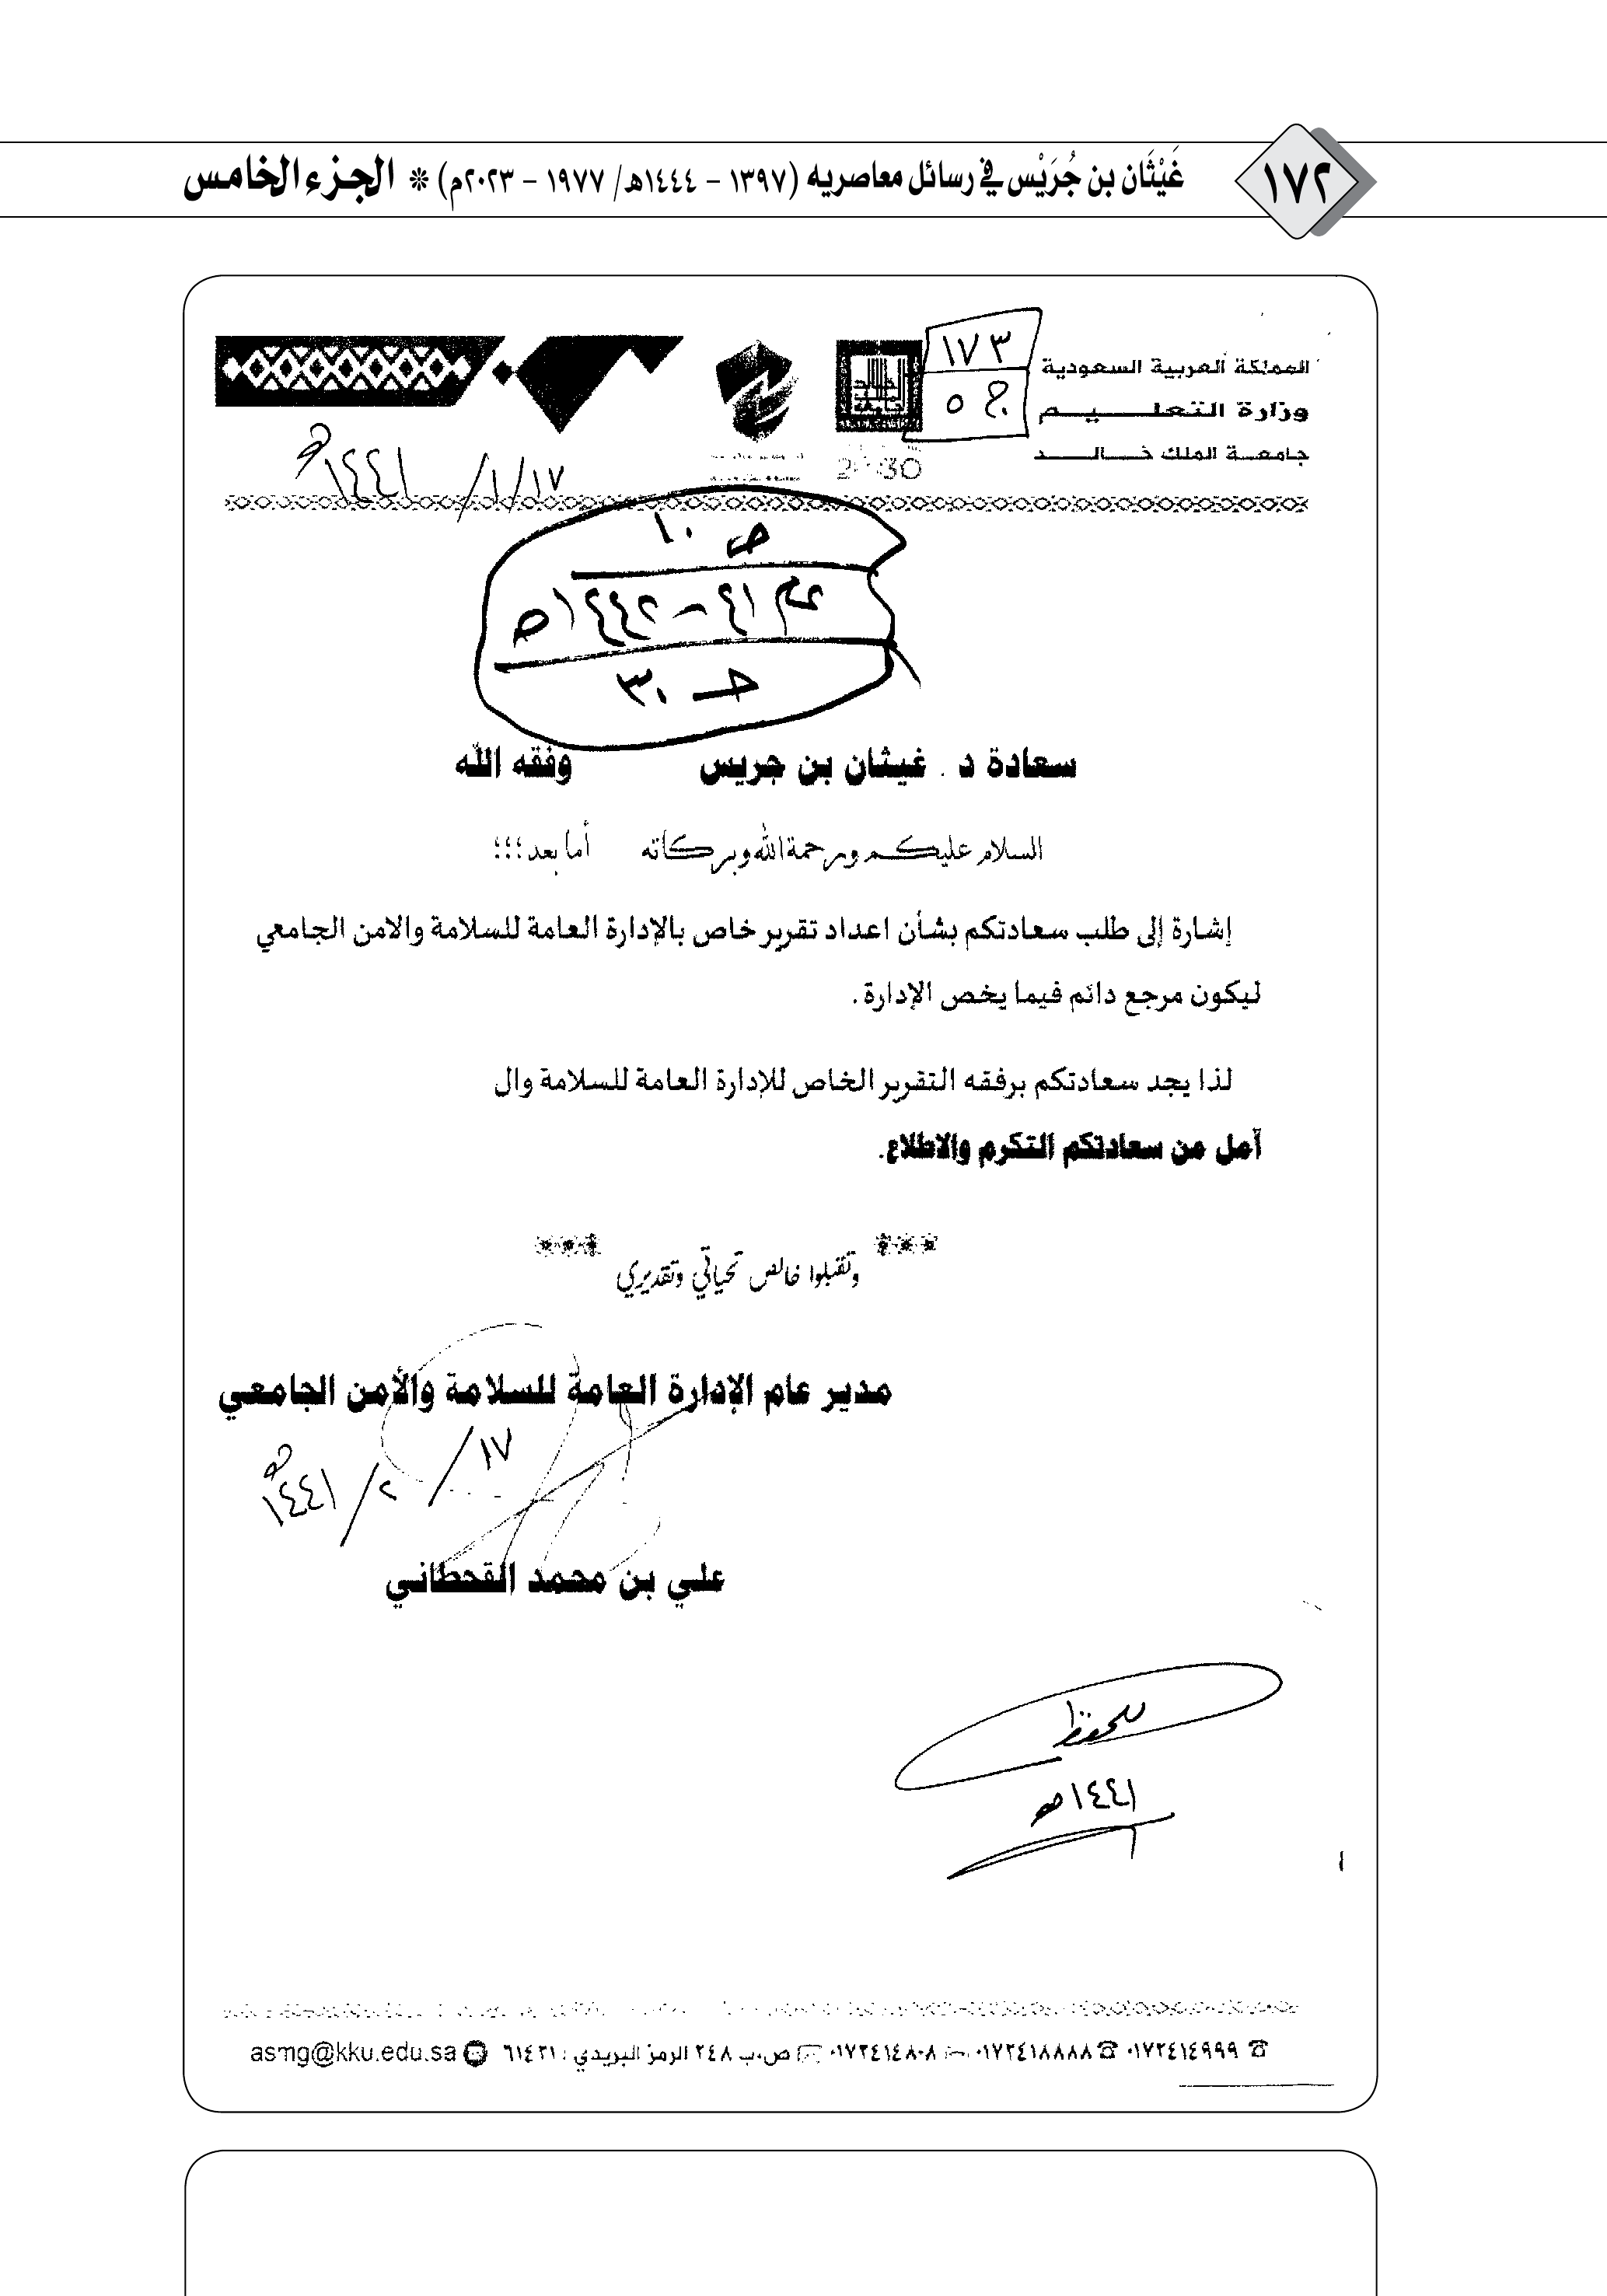 ١٧٢
غَيْثَان بن جُرَيْس في رسائل معاصريه (١٣٩٧ - ١٤٤٤هـ/ ١٩٧٧ - ٢٠٢٣م) ❊ الجزء الخامس
المملكة العربية السعودية
وزارة التعليم
جامعة الملك خالد
١٧٣
ج ٥
2030
١٧/١/١٤٤١هـ
ص ١٠
عام ٤١ - ١٤٤٢هـ
حـ ٣٠
سعادة د . غيثان بن جريس وفقه الله
السلام عليكم ورحمة الله وبركاته أما بعد ؛؛؛
إشارة إلى طلب سعادتكم بشأن اعداد تقرير خاص بالإدارة العامة للسلامة والامن الجامعي
ليكون مرجع دائم فيما يخص الإدارة .
لذا يجد سعادتكم برفقه التقرير الخاص للإدارة العامة للسلامة وال
أمل من سعادتكم التكرم والاطلاع.
*** وتقبلوا خالص تحياتي وتقديري ***
مدير عام الإدارة العامة للسلامة والأمن الجامعي
١٧/٢/١٤٤١هـ
علي بن محمد القحطاني
للحفظ
١٤٤١هـ
☎ ٠١٧٢٤١٤٩٩٩ ☎ ٠١٧٢٤١٨٨٨٨ ٠١٧٢٤١٤٨٠٨ ص.ب ٢٤٨ الرمز البريدي : ٦١٤٢١ asmg@kku.edu.sa